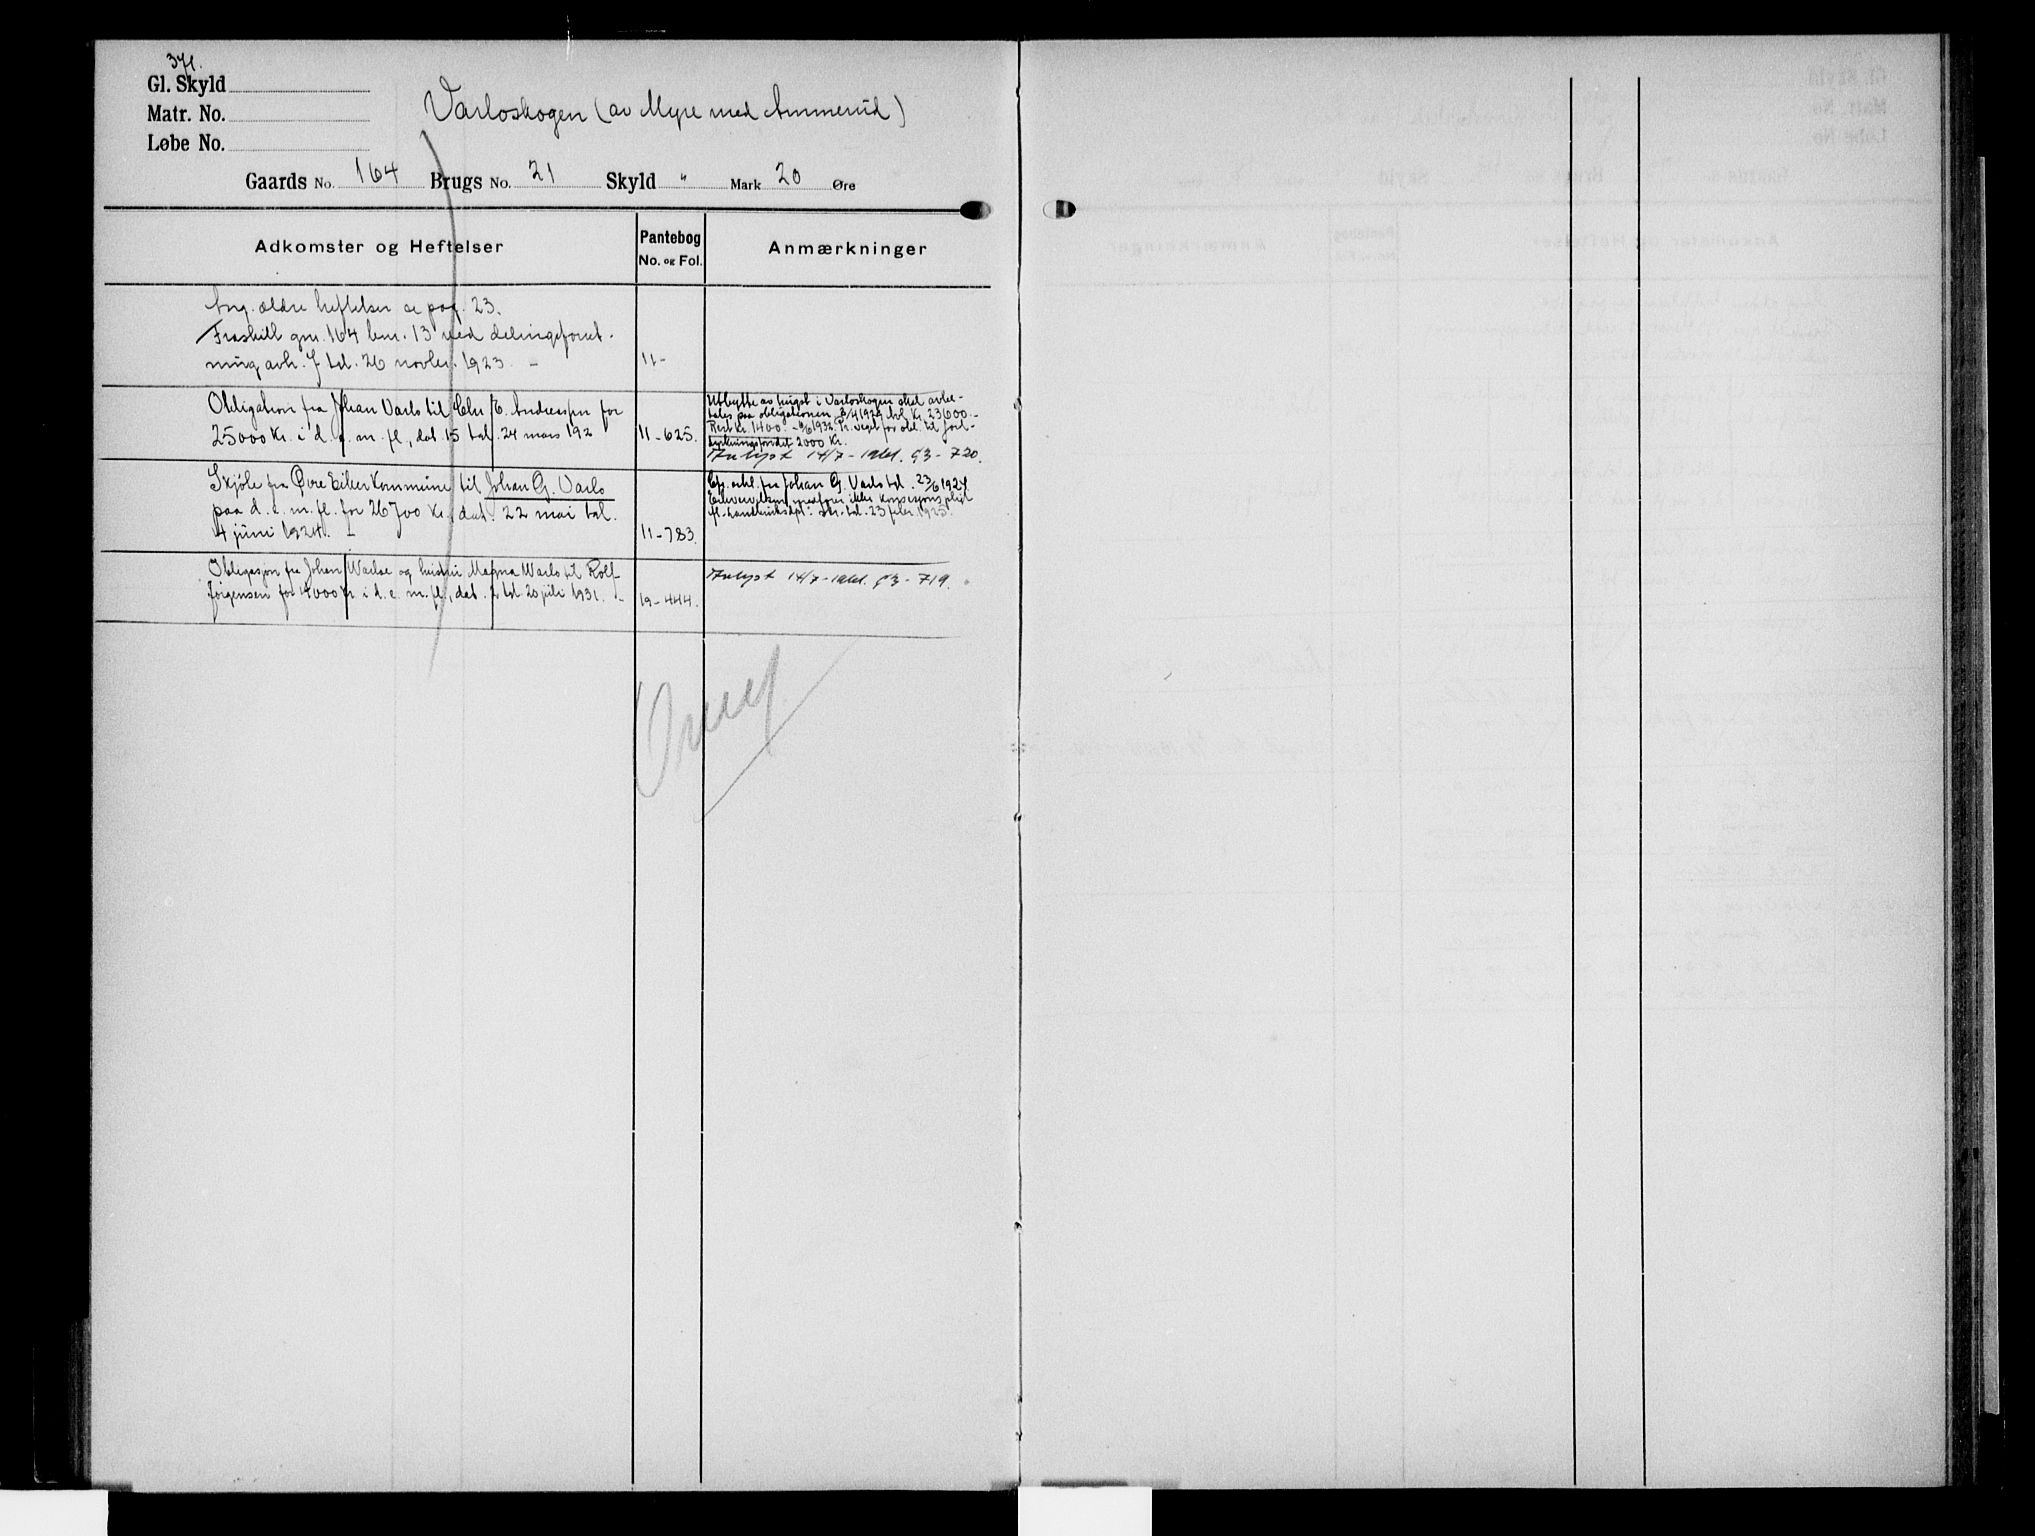 371.
Gl. Skyld
Matr. No.
Løbe No.
Varloskogen (av Myre med Ammerud)
Gaards No. 164 Brugs No. 21 Skyld " Mark 20 Øre
Adkomster og Heftelser
Pantebog
No. og Fol.
Anmærkninger
Ang. ældre heftelser se pag. 23.
Fraskilt gnr. 164 bnr. 13 ved delingsforret-
ning avh. tl. 26 novbr. 1923. -
11-
Obligation fra Johan Varlo til Chr. E. Andreassen for
25000 Kr. i d. e. m. fl., dat. 15 tal. 24 mars 192
11-625.
Utbytte av hugst i Varloskogen skal avbe-
tales paa obligationen 1929 tl. Kr. 23600.-
Rest kr. 1400.- 1932. Pr. veget for obl. til forl-
2000 Kr.
Avlyst 14/7-1961. 93-720.
Skjøte fra Øvre Eiker Kommune til Johan G. Varlo
paa d. e. m. fl. for 26700 Kr., dat. 22 mai tal.
4 juni 1924. -
11-783.
Egt. erkl. fra Johan G. Varlo tl. 23/6 1924.
Erhvervelsen medfører ikke konsesjonspligt
fl. Landbruksdpt: skr. tl. 23 febr. 1925.
Obligasjon fra Johan Warloe og hustru Magna Warlo til Rolf
Jörgensen for 4000 kr i d. e. m. fl., dat. 2 tl 20 juli 1931. -
19-444.
Avlyst 14/7-1961. 93-719.